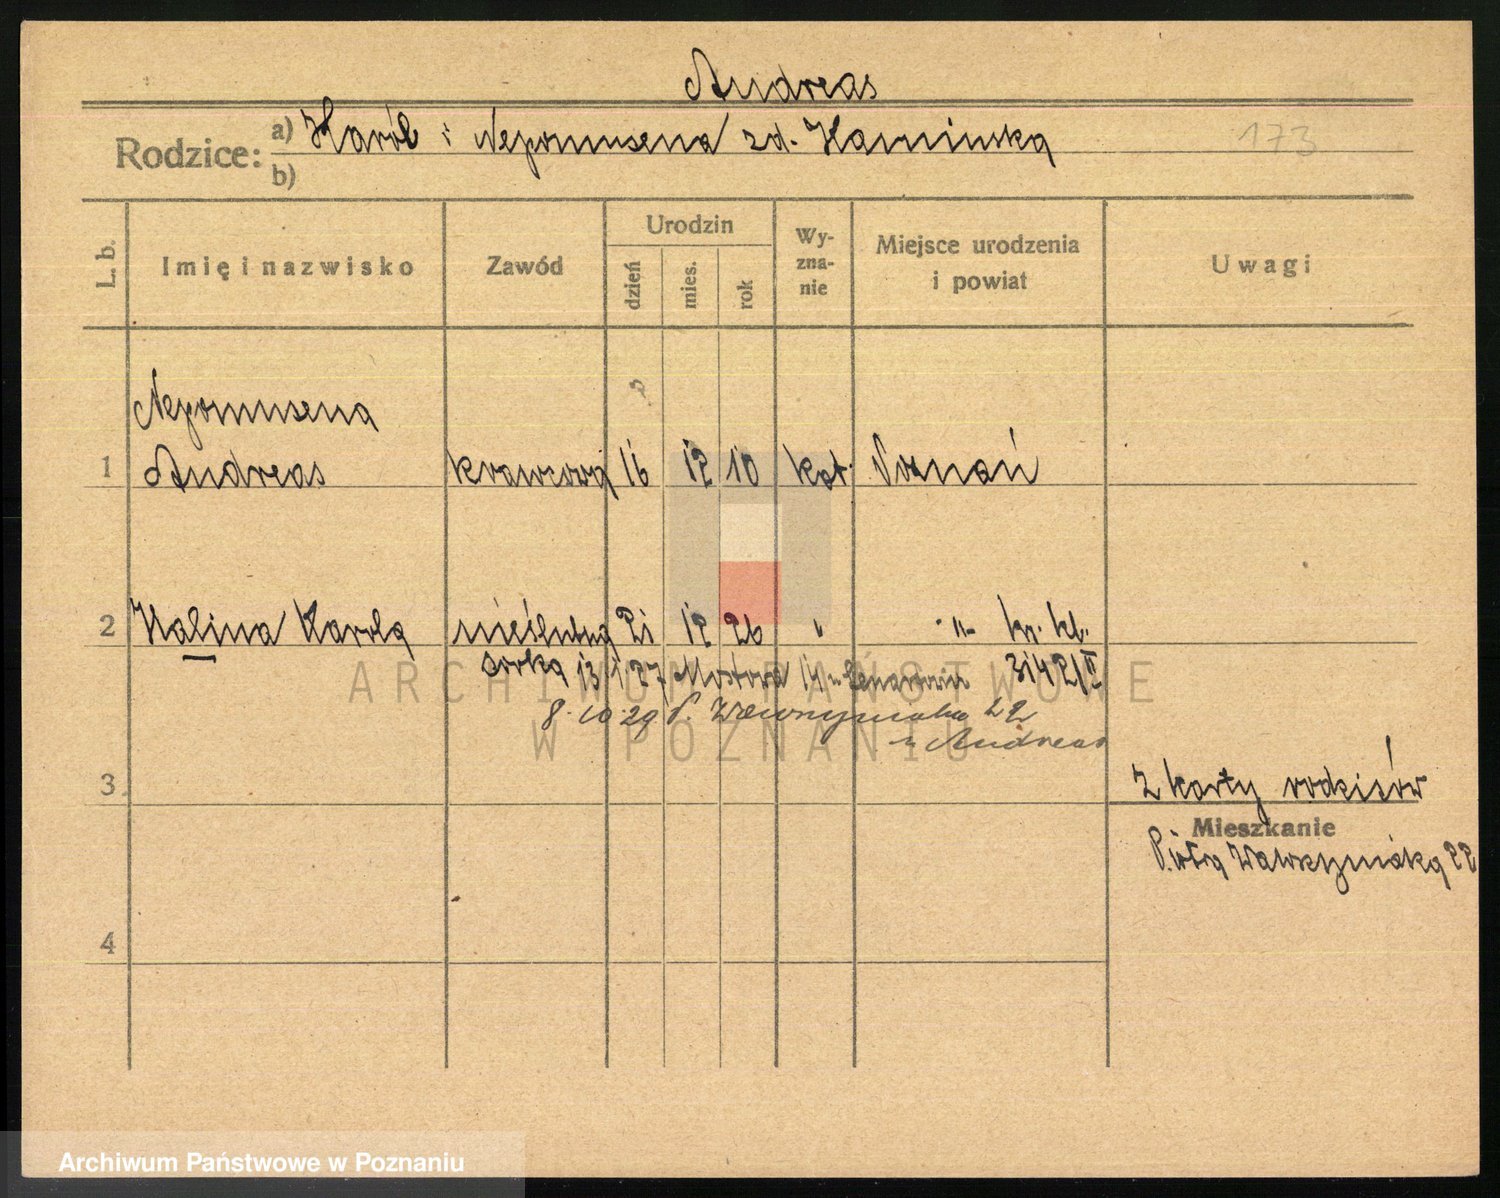 Andreas
Rodzice:
a) Karól i Nepomusena zd. Kaminska
173
b)
L. b.
Imię i nazwisko
Zawód
Urodzin
dzień
mies.
rok
Wy-
zna-
nie
Miejsce urodzenia
i powiat
Uwagi
Nepomusena
1 Andreas krawcową 16 12 10 kat. Poznań
2 Halina Karola nieślubną 21 12 26 " -"- kr. kl.
córka 13 1 27 Mostowa 14 3142/II
8.10.29 P. Wawrzyniaka 22
u Andreas
3
z karty rodziców
Mieszkanie
Piotra Wawrzyniaka 22
4
ARCHIWUM PAŃSTWOWE
W POZNANIU
Archiwum Państwowe w Poznaniu